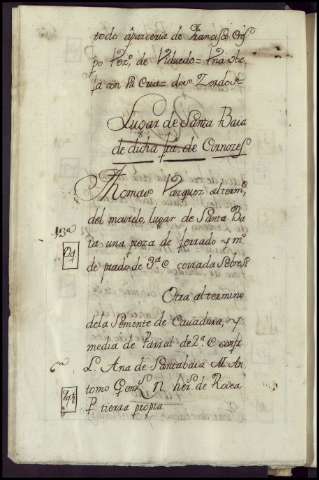 todo aparceria de Francisco Cris
po Vez.º de Viduedo = Ana Ote
sa con la Cruz = dos Zerdos =
Lugar de Santa Baia
de dicha frâ. de Cornozes
Thomas Vazquez al term.
del mourelo, lugar de Santa Ba
ia una pieza de ferrado y m.
de prado de 3.ª C. cerrada Sobre
Otra al termino
dela Semente de Cavadura, y
media de Parral de 2.ª C. conf.
L. Ana de Santabaia M. An
tonio P. N. her.s de Rosea
P. tierra propia